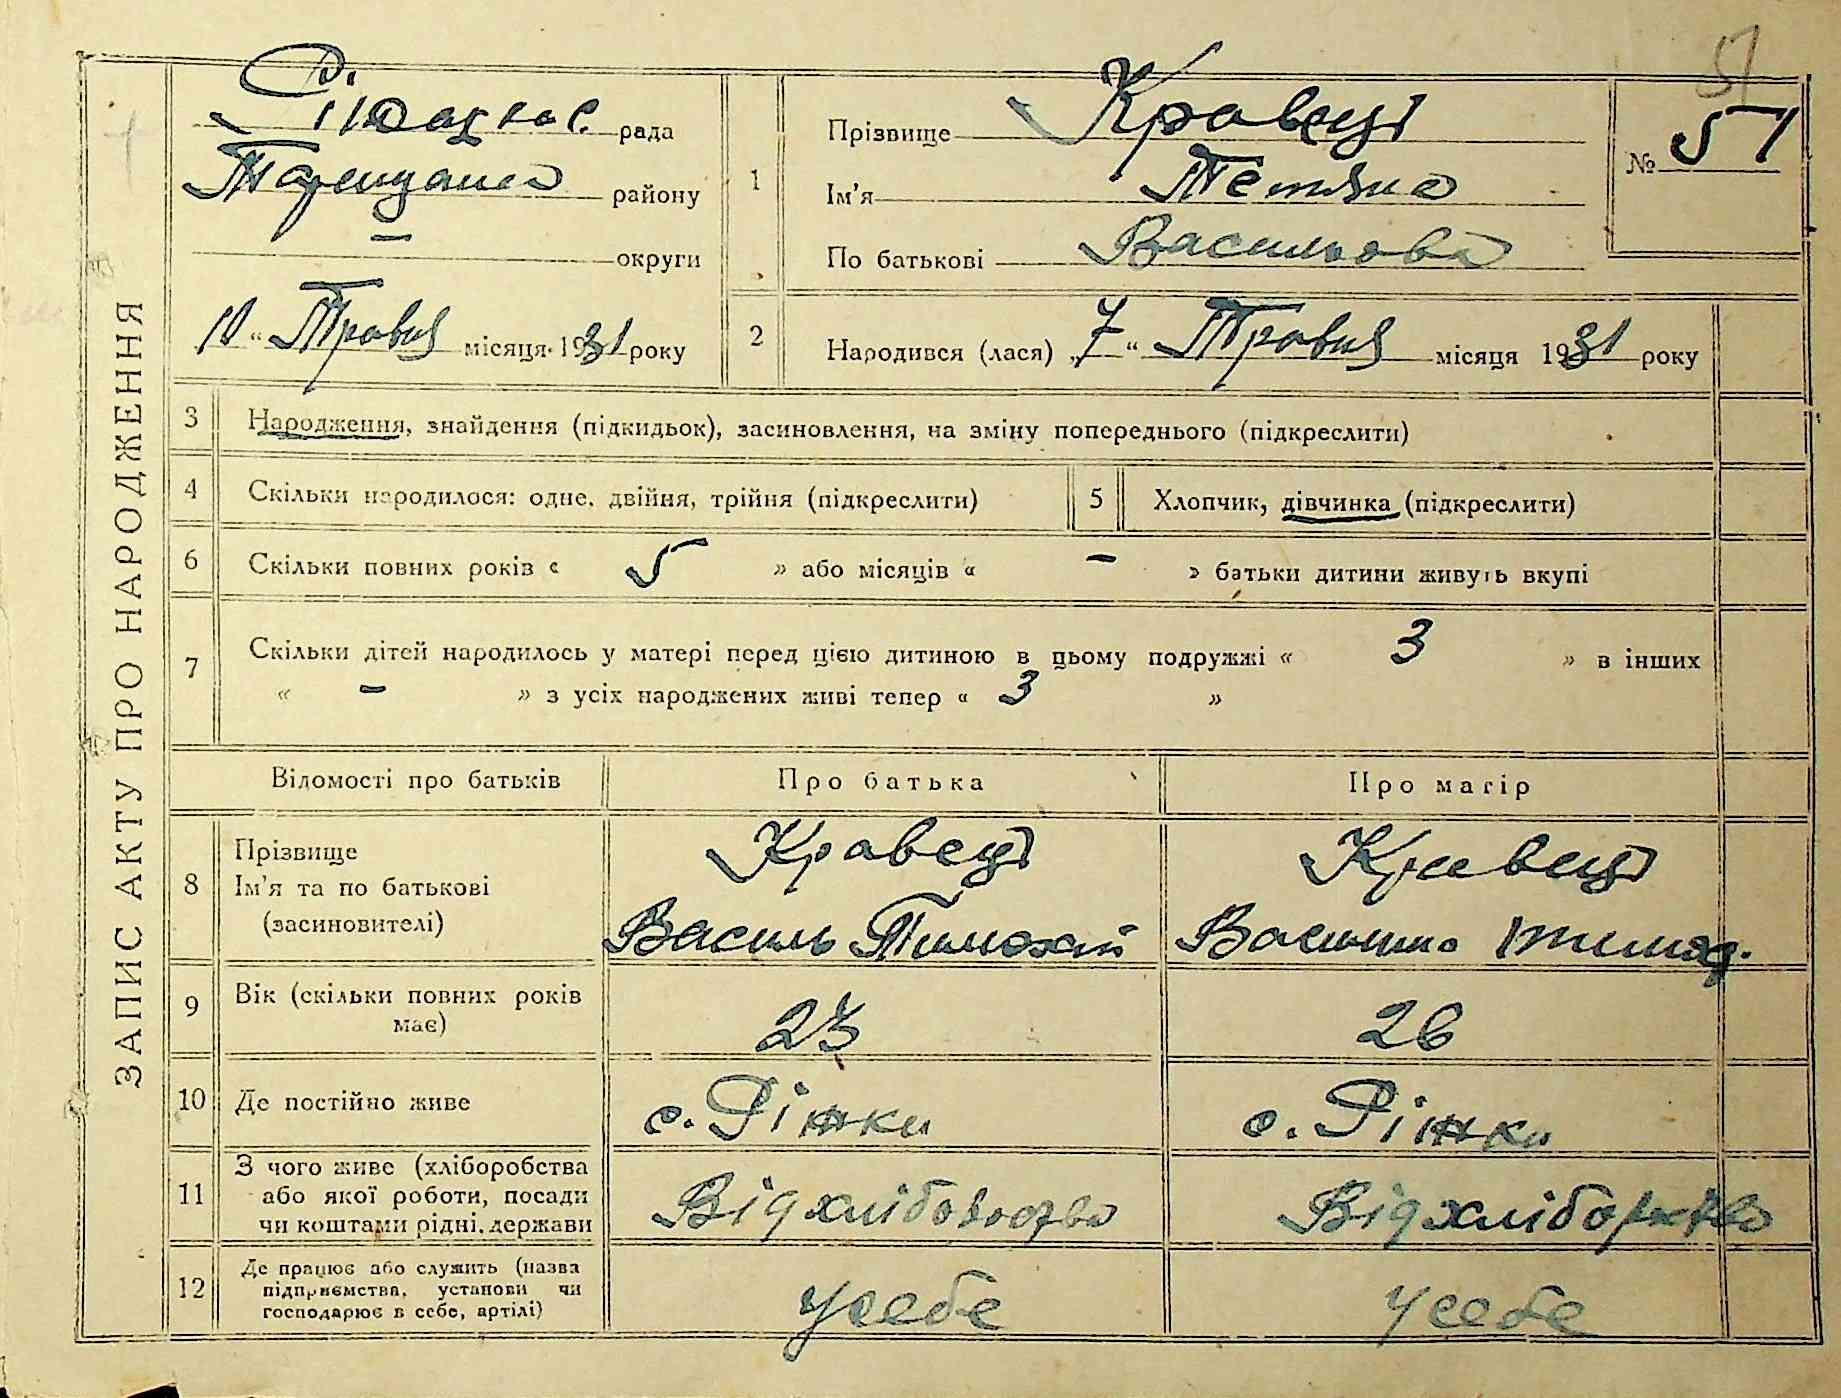 51
рада
району
округи
10 " Травня місяця 1931 року
ЗАПИС АКТУ ПРО НАРОДЖЕННЯ
1
Прізвище Кравець
Ім'я Тетяна
По батькові Васильова
№ 51
2
Народився (лася) „7" Травня місяця 1931 року
3 Народження, знайдення (підкидьок), засиновлення, на зміну попереднього (підкреслити)
4 Скільки народилося: одне, двійня, трійня (підкреслити) 5 Хлопчик, дівчинка (підкреслити)
6 Скільки повних років « 5 » або місяців « – » батьки дитини живуть вкупі
7 Скільки дітей народилось у матері перед цією дитиною в цьому подружжі « 3 » в інших
« – » з усіх народжених живі тепер « 3 »
Відомості про батьків Про батька Про матір
8 Прізвище Кравець Кравець
Ім'я та по батькові
(засиновителі) Василь
9 Вік (скільки повних років 23 26
має)
10 Де постійно живе с. Ріжки с. Ріжки
11 З чого живе (хліборобства
або якої роботи, посади Від хліборобства Від хліборобства
чи коштами рідні, держави
12 Де працює або служить (назва
підприємства, установи чи усебе усебе
господарює в себе, артілі)